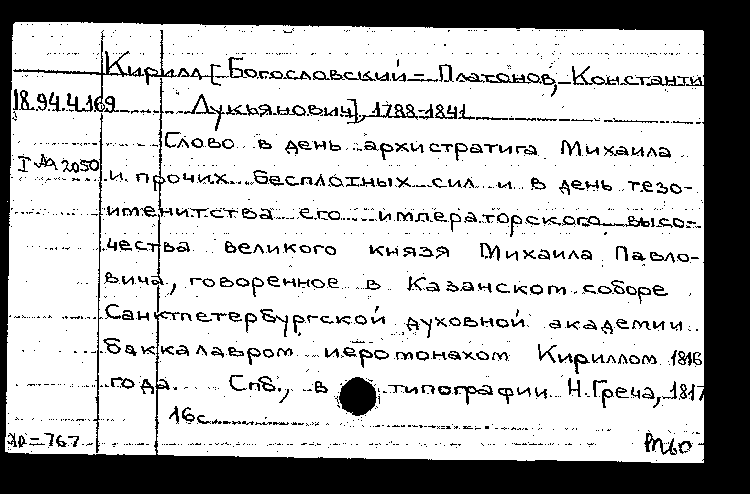 Кирилл [Богословский-Платонов, Константи
18.94.4.169 Лукьянович], 1788-1841
Слово в день архистратига Михаила
и прочих бесплотных сил и в день тезо-
именитства его императорского высо-
чества великого князя Михаила Павло-
вича, говоренное в Казанском соборе
Санктпетербургской духовной академии
баккалавром иеромонахом Кириллом 1816
года. Спб., в типографии Н. Греча, 1817
16с.